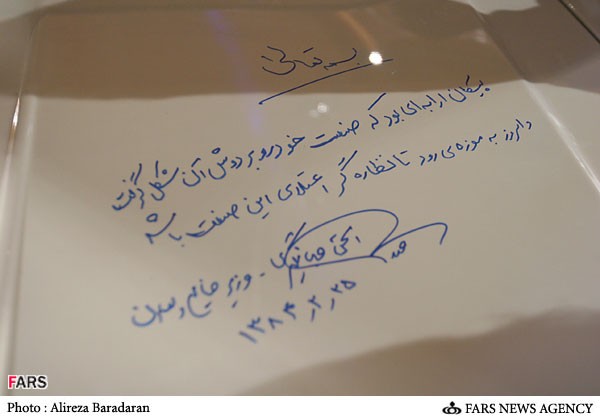 بسمه تعالی
پیکان ارابه‌ای بود که صنعت خودرو بر دوش آن شکل گرفت
و امروز به موزه می رود تا نظاره گر اعتلای این صنعت باشد
اسحق جهانگیری - وزیر صنایع و معادن
۱۳۸۴٫۲٫۲۵
FARS
Photo : Alireza Baradaran
FARS NEWS AGENCY